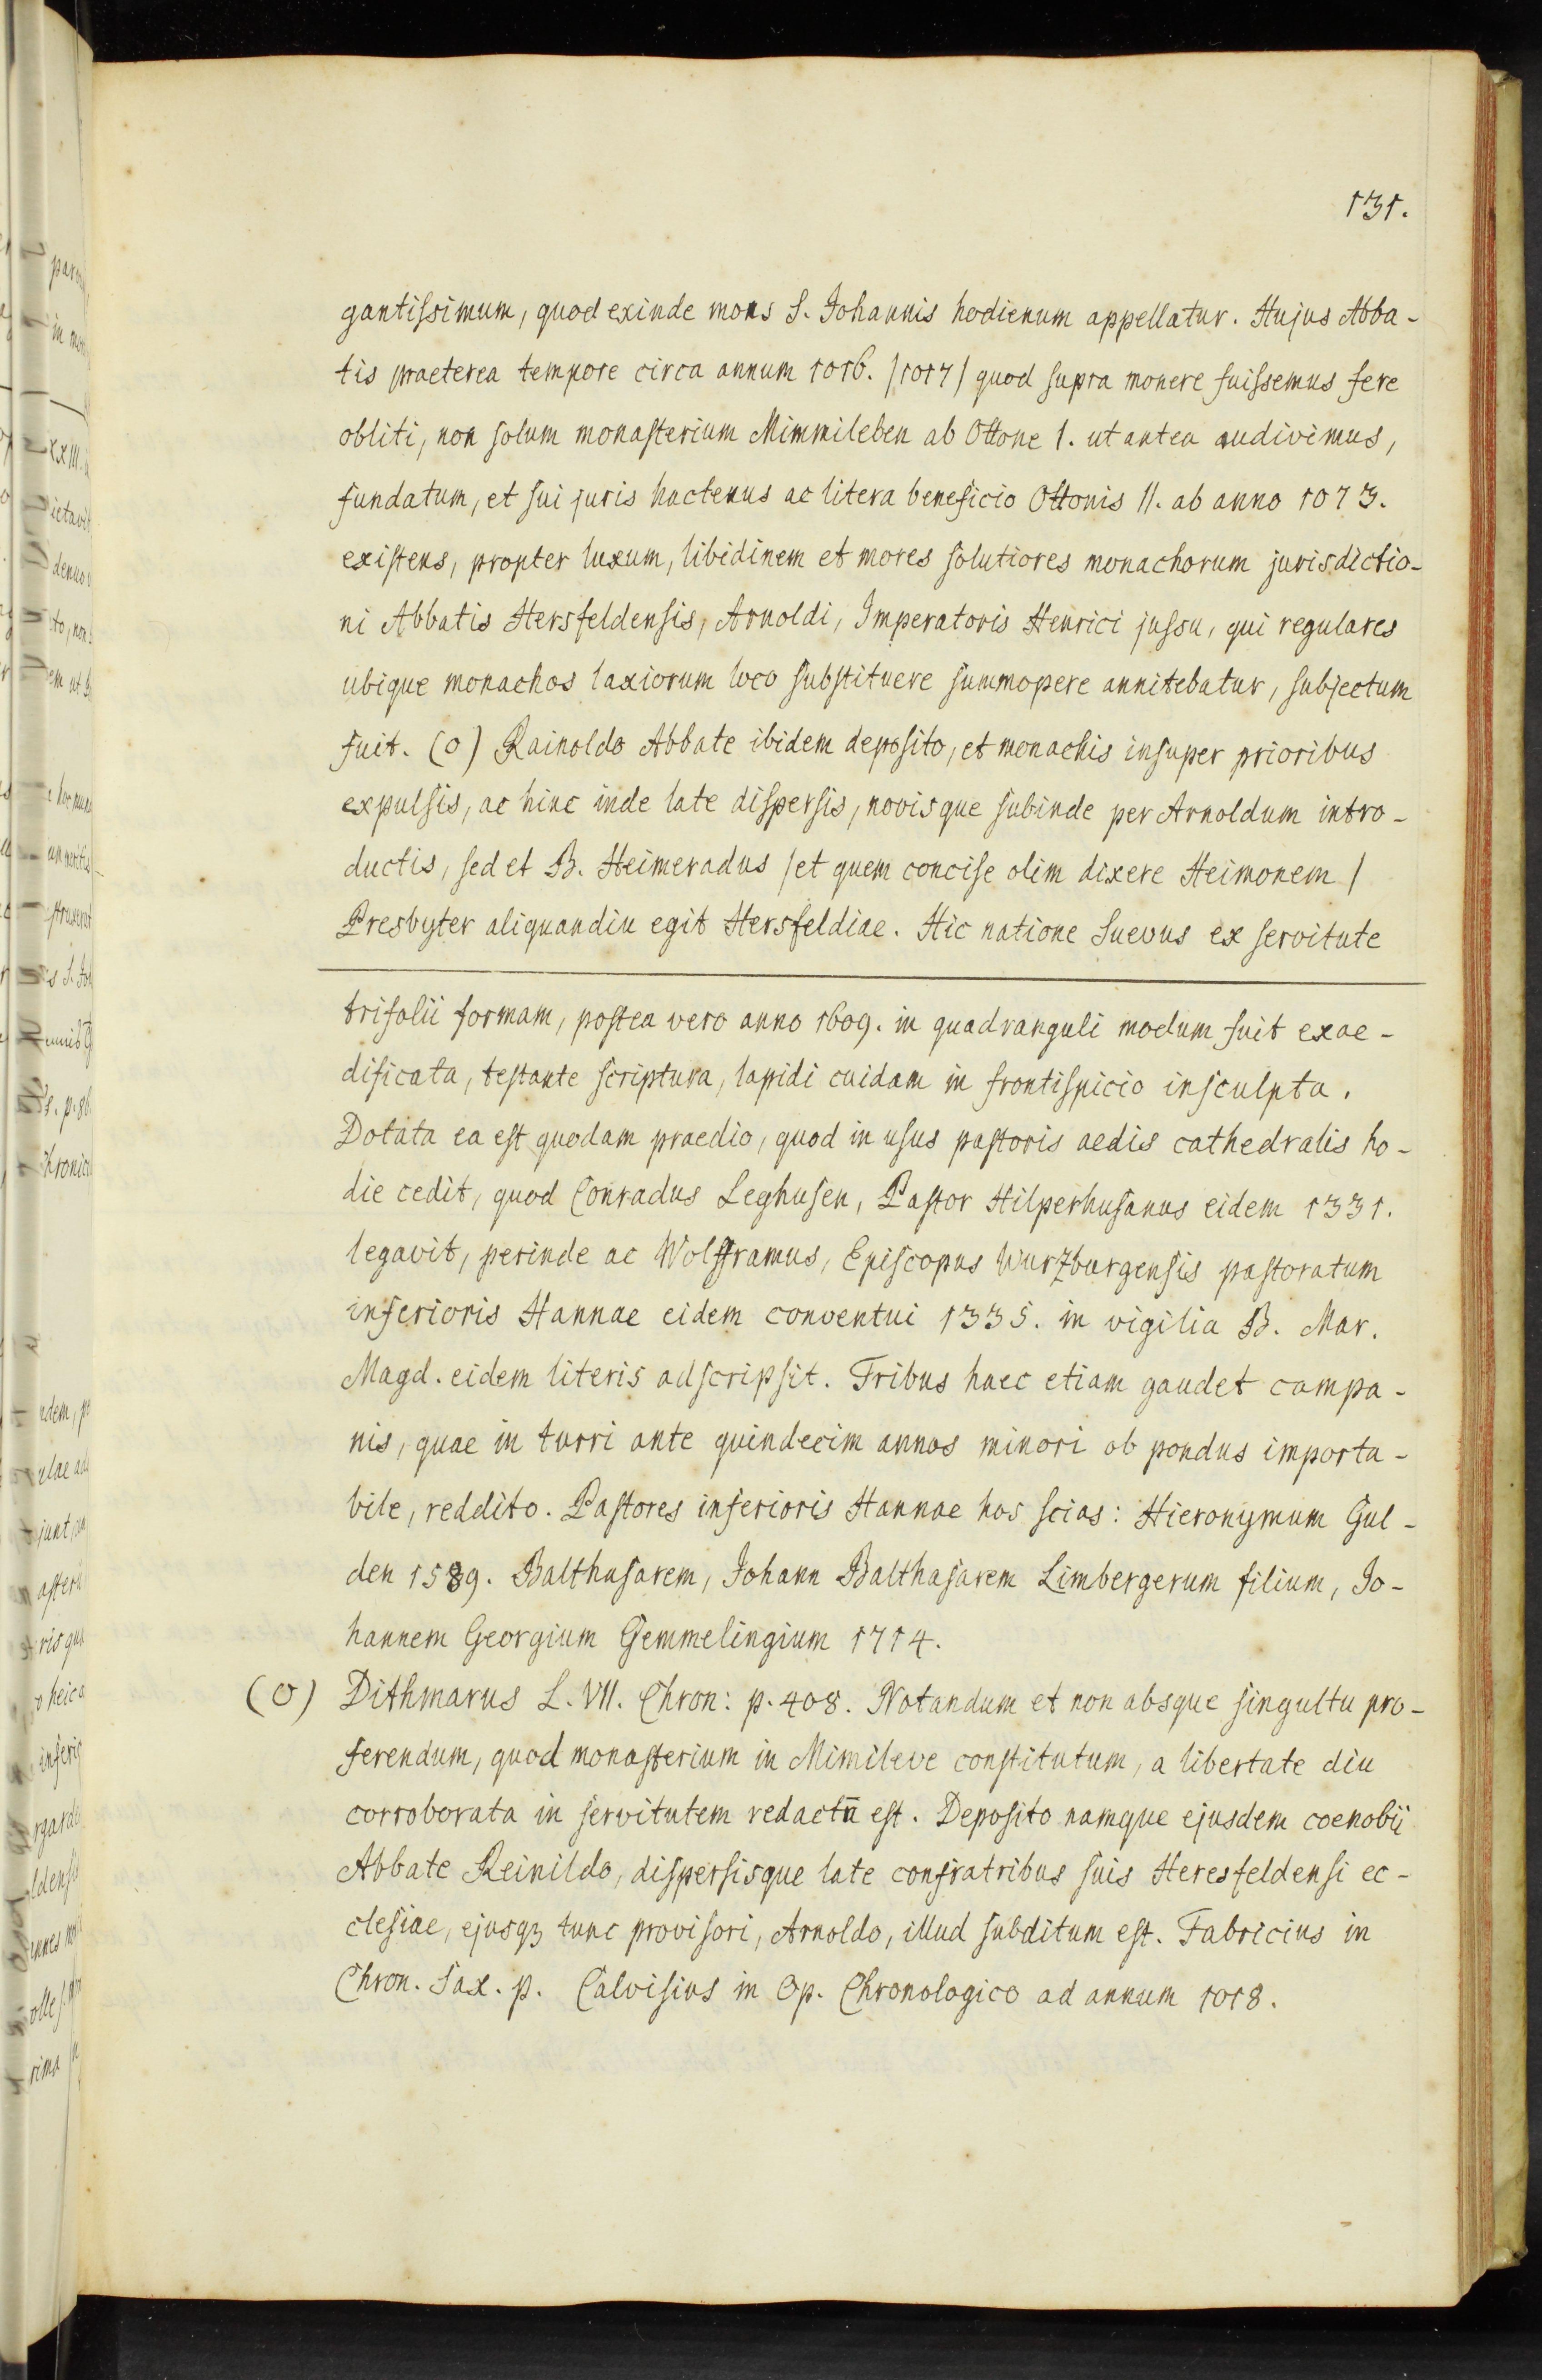 131.
gantissimum, quod exinde mons S. Johannis hodienum appellatur. Hujus Abba-
tis praeterea tempore circa annum 1016. /1017/ quod supra monere fuissemus fere
obliti, non solum monasterium Mimmileben ab Ottone I. ut antea audivimus,
fundatum, et sui juris hactenus ac litera beneficio Ottonis II. ab anno 1073.
existens, propter luxum, libidinem et mores solutiores monachorum jurisdictio-
ni Abbatis Hersfeldensis, Arnoldi, Imperatoris Henrici jussu, qui regulares
ubique monachos laxiorum loco substituere summopere annitebatur, subjectum
fuit. (o) Rainoldo Abbate ibidem deposito, et monachis insuper prioribus
expulsis, ac hinc inde late dispersis, novisque subinde per Arnoldum intro-
ductis, sed et B. Heimeradus /et quem concise olim dixere Heimonem/
Presbyter aliquandiu egit Hersfeldiae. Hic natione Suevus ex servitute
trifolii formam, postea vero anno 1609. in quadranguli modum fuit exae-
dificata, testante scriptura, lapidi cuidam in frontispicio insculpta.
Dotata ea est quodam praedio, quod in usus pastoris aedis cathedralis ho-
die cedit, quod Conradus Leghusen, Pastor Hilperhusanus eidem 1331.
legavit, perinde ac Wolfframus, Episcopus Wurzburgensis pastoratum
inferioris Hannae eidem conventui 1335. in vigilia B. Mar.
Magd. eidem literis adscripsit. Tribus haec etiam gaudet campa-
nis, quae in turri ante quindecim annos minori ob pondus importa-
bile, reddito. Pastores inferioris Hannae hos scias: Hieronymum Gul-
den 1589. Balthasarem, Johann Balthasarem Limbergerum filium, Jo-
hannem Georgium Gemmelingium 1714.
(o) Dithmarus L. VII. Chron: p. 408. Notandum et non absque singultu pro-
ferendum, quod monasterium in Mimileve constitutum, a libertate diu
corroborata in servitutem redactū est. Deposito namque ejusdem coenobii
Abbate Reinildo, dispersisque late confratribus suis Heresfeldensi ec-
clesiae, ejusqꝫ tunc provisori, Arnoldo, illud subditum est. Fabricius in
Chron. Sax. p. Calvisius in Op. Chronologico ad annum 1018.